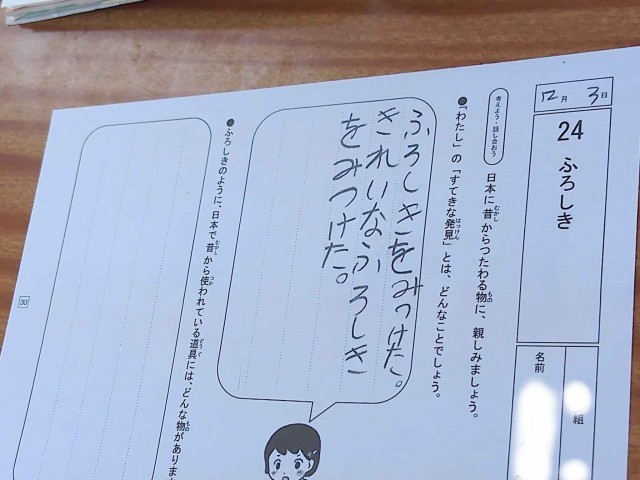 12月 3日
24 ふろしき
組
名前
考えよう・話し合おう
日本に昔からつたわる物に、親しみましょう。
●「わたし」の「すてきな発見」とは、どんなことでしょう。
ふろしきをみつけた。
きれいなふろしき
をみつけた。
●ふろしきのように、日本で昔から使われている道具には、どんな物がありま
30